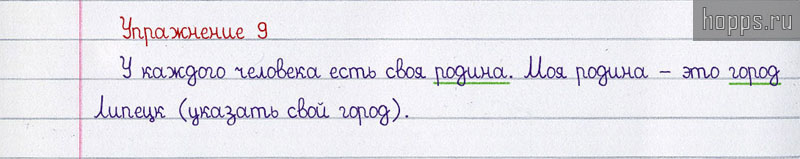 hopps.ru
Упражнение 9
У каждого человека есть своя родина. Моя родина – это город
Липецк (указать свой город).